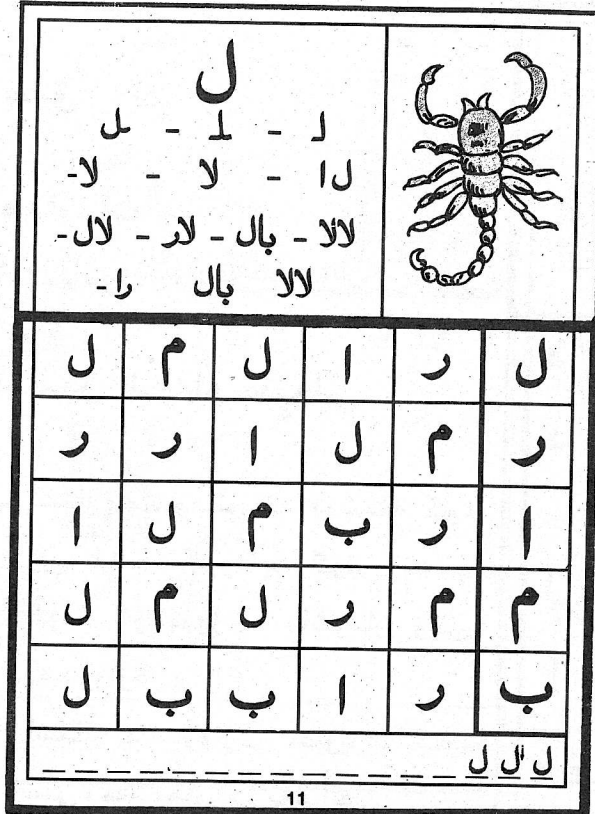 ل
لـ - ـلـ - ـل
ل ا - لا - لا-
لالا - بال - لار - لال-
لالا بال را-
ل ر ا ل م ل
ر م ل ا ر ر
ا ر ب م ل ا
م م ر ل م ل
ب ر ا ب ب ل
ل ل ل
11